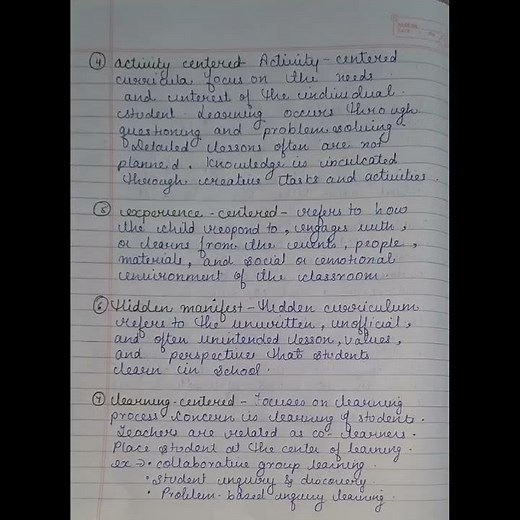 ④ activity centered Activity-centered
curricula focus on the needs
and interest of the individual
student. Learning occurs through
questioning and problem solving.
Detailed lessons often are not
planned. Knowledge is inculcated
through creative tasks and activities.
⑤ experience-centered - refers to how
the child respond to, engages with,
or learns from the events, people,
materials, and social or emotional
environment of the classroom.
⑥ Hidden manifest - Hidden curriculum
refers to the unwritten, unofficial,
and often unintended lesson, values,
and perspective that students
learn in school.
⑦ learning-centered - Focuses on learning
process concern is learning of students.
Teachers are related as co-learners.
Place student at the center of learning.
ex → • collaborative group learning.
• Student inquiry & discovery
• Problem-based inquiry learning.